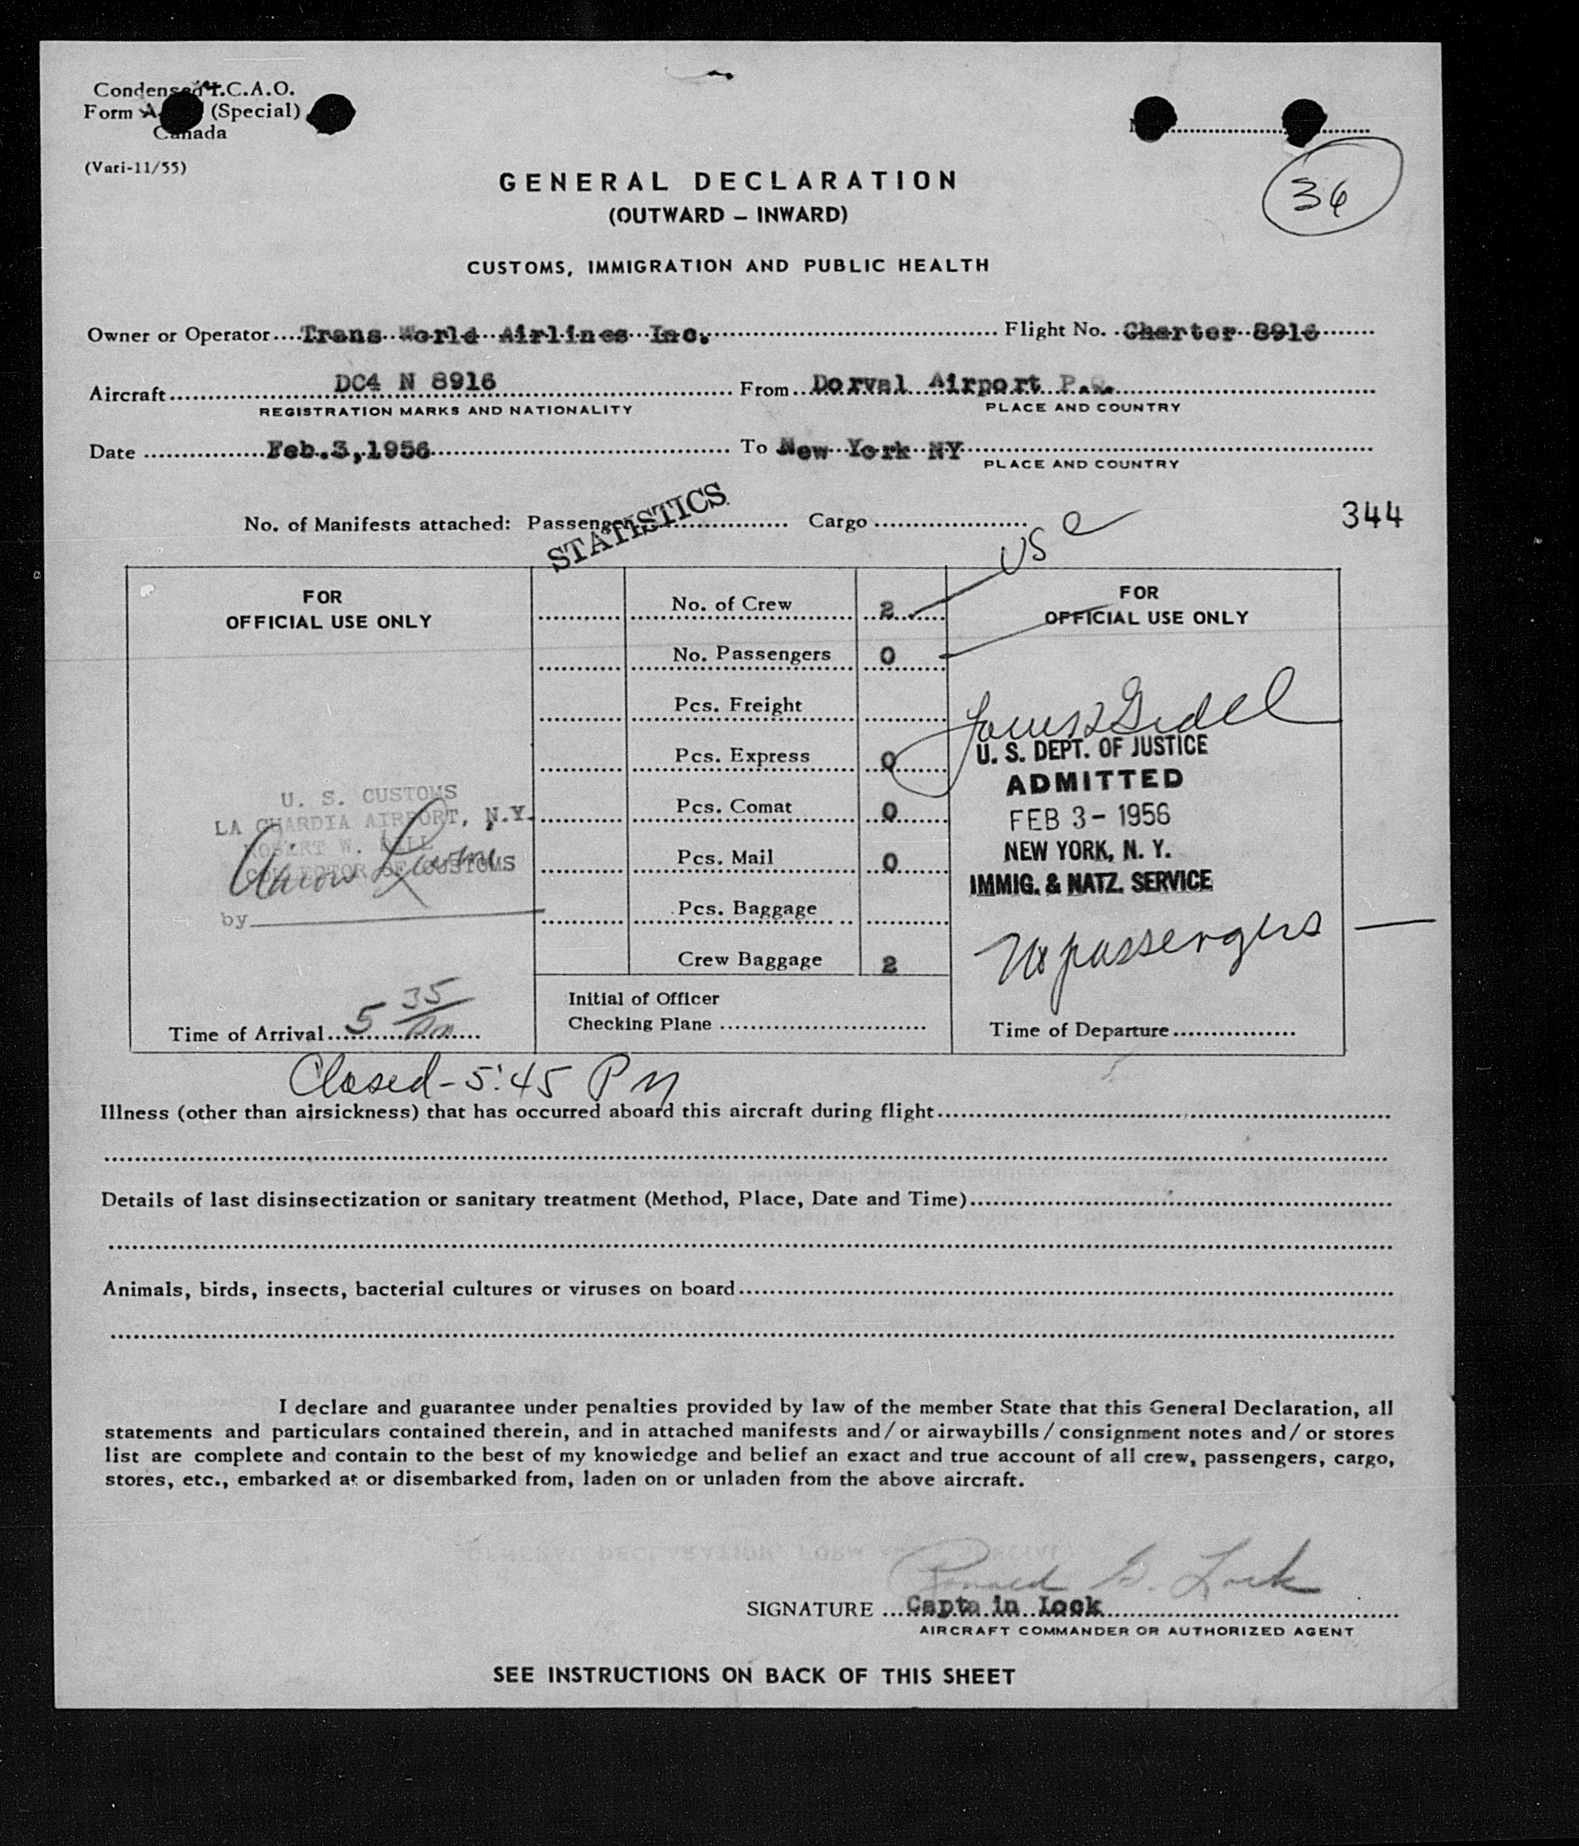 Condensed I.C.A.O.
Form A (Special)
Canada
(Vari-11/55)
GENERAL DECLARATION
(OUTWARD – INWARD)
36
CUSTOMS, IMMIGRATION AND PUBLIC HEALTH
Owner or Operator Trans World Airlines Inc. Flight No. Charter 8916
Aircraft DC4 N 8916 From Dorval Airport P.Q.
REGISTRATION MARKS AND NATIONALITY PLACE AND COUNTRY
Date Feb.3,1956 To New York NY
PLACE AND COUNTRY
STATISTICS
No. of Manifests attached: Passenger Cargo 344
USC
FOR
OFFICIAL USE ONLY
U. S. CUSTOMS
LA GUARDIA AIRPORT, N.Y.
ROBERT W. DILL
COLLECTOR OF CUSTOMS
by
Time of Arrival 5 35/
No. of Crew 2
No. Passengers 0
Pcs. Freight
Pcs. Express 0
Pcs. Comat 0
Pcs. Mail 0
Pcs. Baggage
Crew Baggage 2
Initial of Officer
Checking Plane
FOR
OFFICIAL USE ONLY
U. S. DEPT. OF JUSTICE
ADMITTED
FEB 3 - 1956
NEW YORK, N. Y.
IMMIG. & NATZ. SERVICE
No passengers —
Time of Departure
Closed - 5:45 PM
Illness (other than airsickness) that has occurred aboard this aircraft during flight
Details of last disinsectization or sanitary treatment (Method, Place, Date and Time)
Animals, birds, insects, bacterial cultures or viruses on board
I declare and guarantee under penalties provided by law of the member State that this General Declaration, all
statements and particulars contained therein, and in attached manifests and/or airwaybills/consignment notes and/or stores
list are complete and contain to the best of my knowledge and belief an exact and true account of all crew, passengers, cargo,
stores, etc., embarked at or disembarked from, laden on or unladen from the above aircraft.
Ronald G. Lock
SIGNATURE Captain Lock
AIRCRAFT COMMANDER OR AUTHORIZED AGENT
SEE INSTRUCTIONS ON BACK OF THIS SHEET